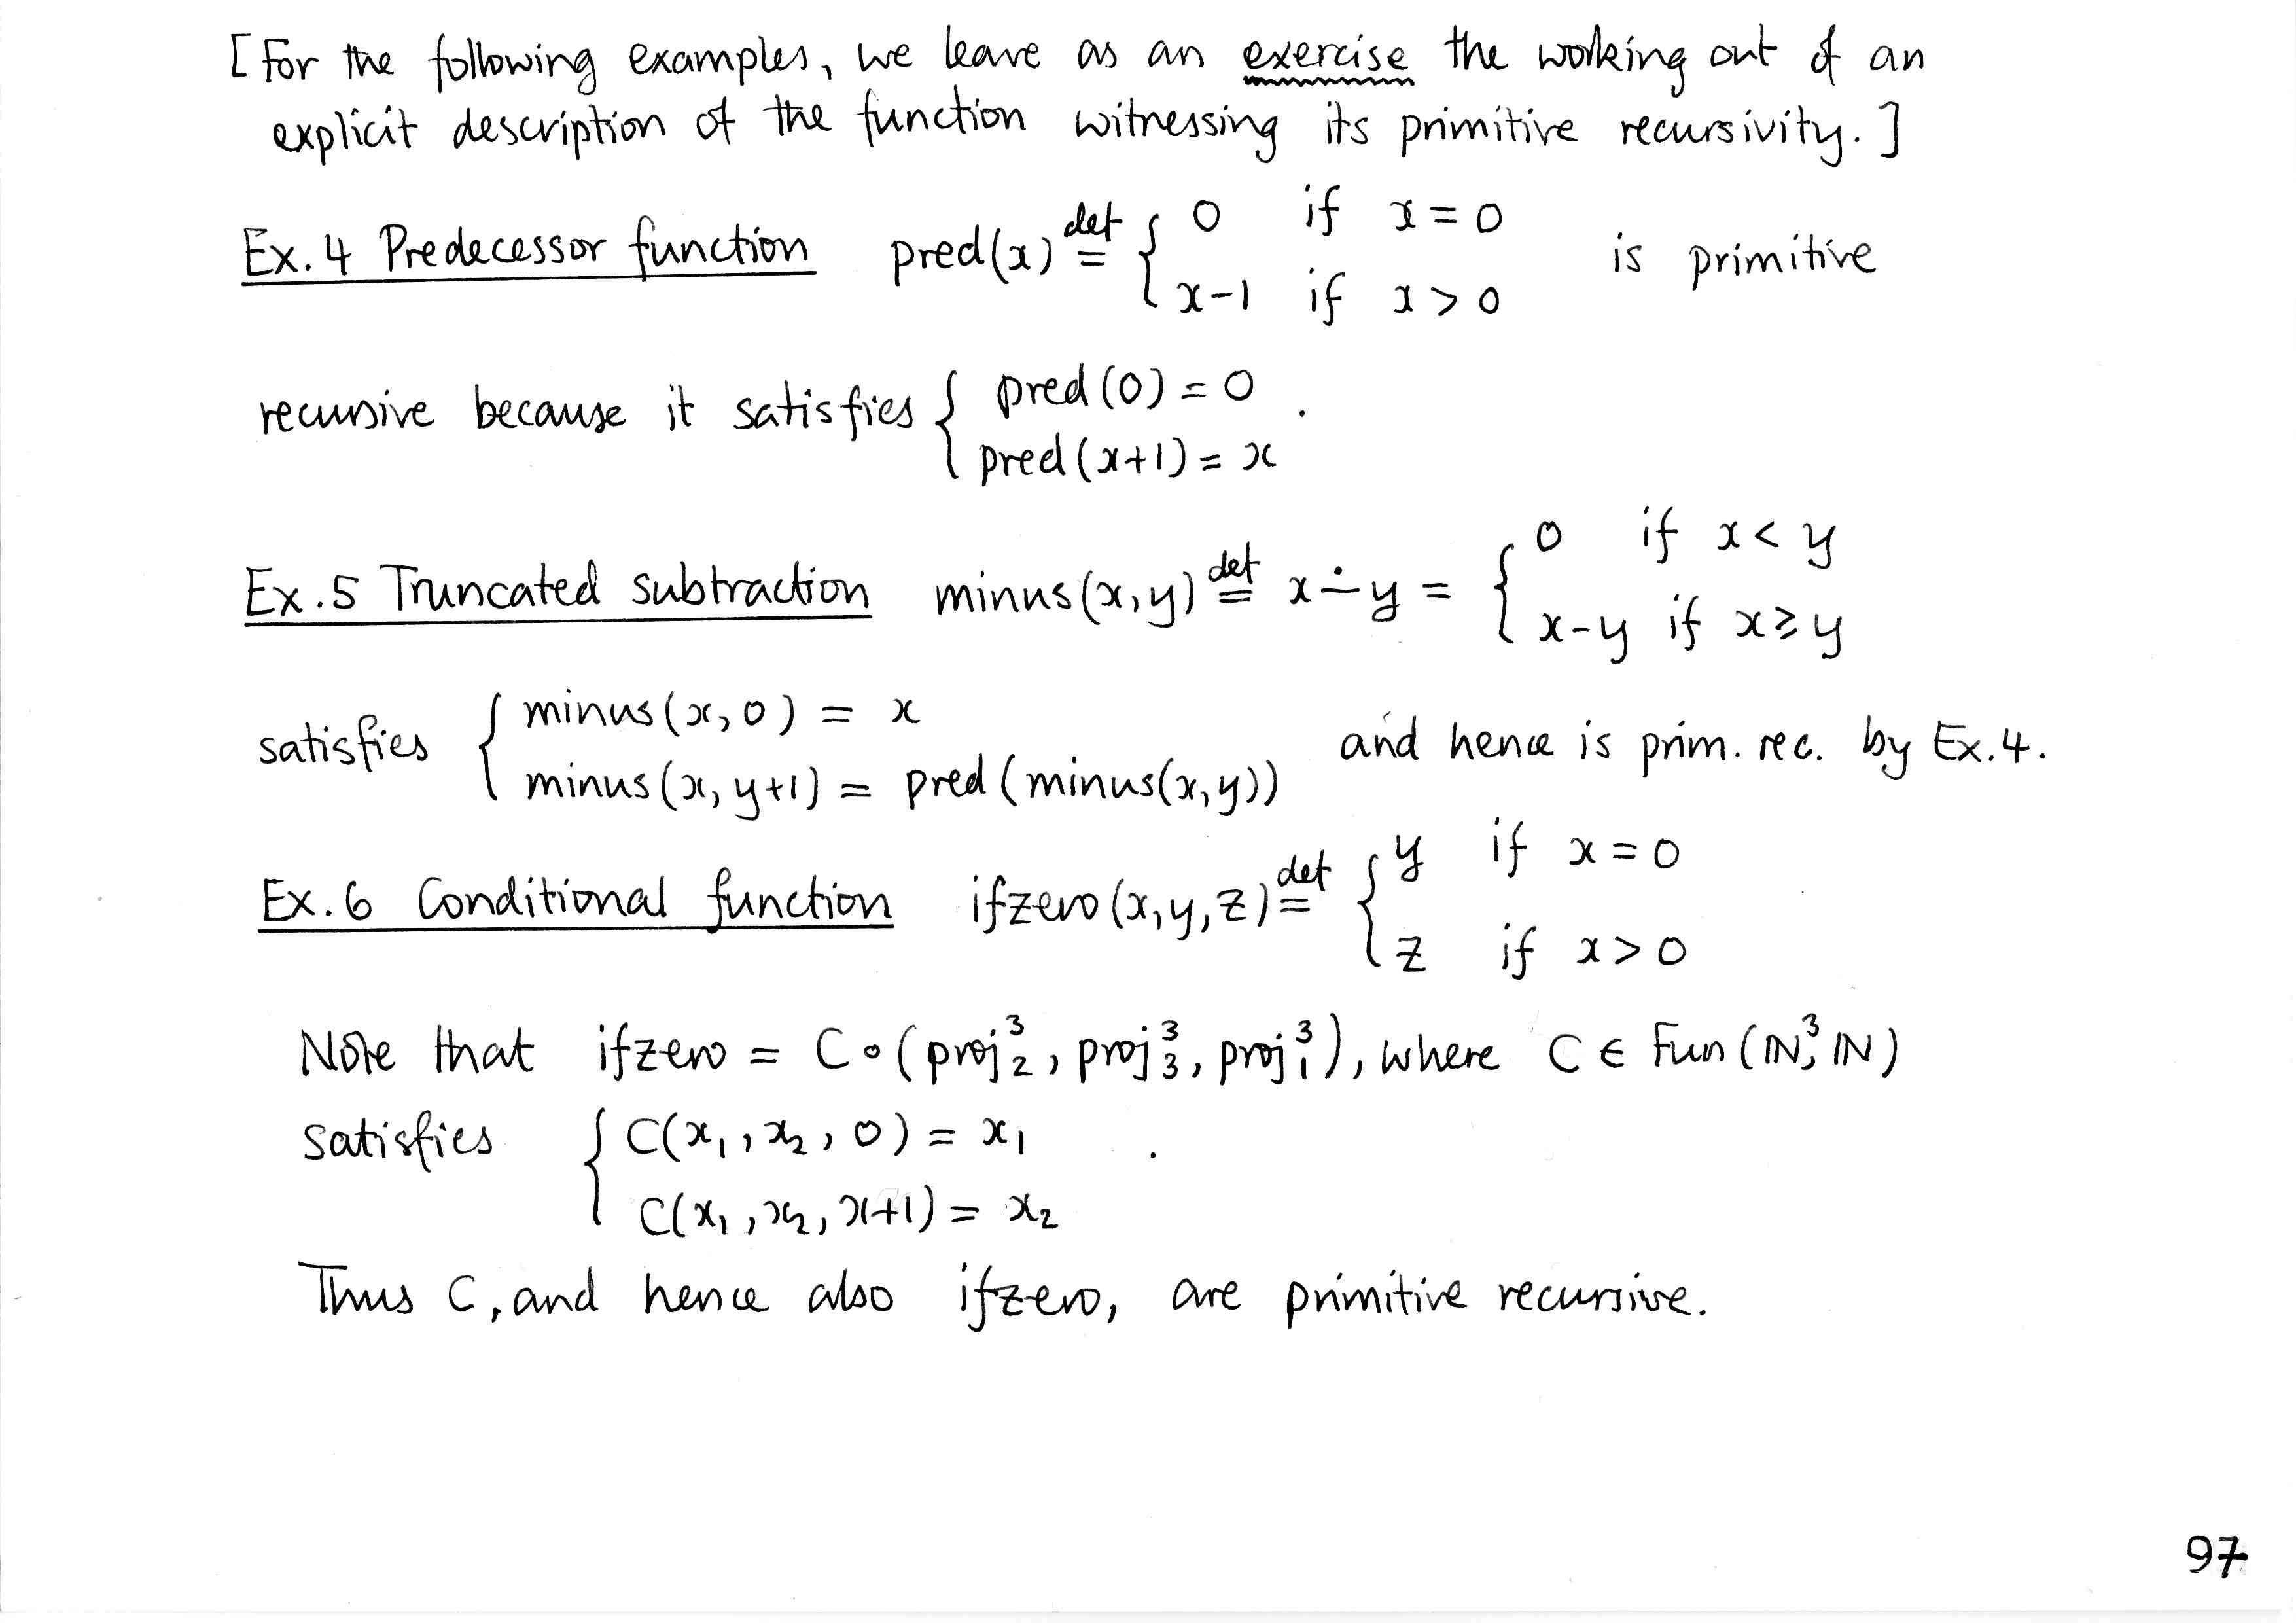 [For the following examples, we leave as an exercise the working out of an
explicit description of the function witnessing its primitive recursivity.]
Ex.4 Predecessor function pred(x) def= { 0 if x=0
x-1 if x>0 is primitive
recursive because it satisfies { pred(0) = 0
pred(x+1) = x .
Ex.5 Truncated subtraction minus(x,y) def= x ∸ y = { 0 if x<y
x-y if x≥y
satisfies { minus(x,0) = x
minus(x,y+1) = pred(minus(x,y)) and hence is prim. rec. by Ex.4.
Ex.6 Conditional function ifzero(x,y,z) def= { y if x=0
z if x>0
Note that ifzero = C∘(proj³₂, proj³₃, proj³₁), where C ∈ Fun(ℕ³,ℕ)
satisfies { C(x₁,x₂,0) = x₁
C(x₁,x₂,x+1) = x₂ .
Thus C, and hence also ifzero, are primitive recursive.
97